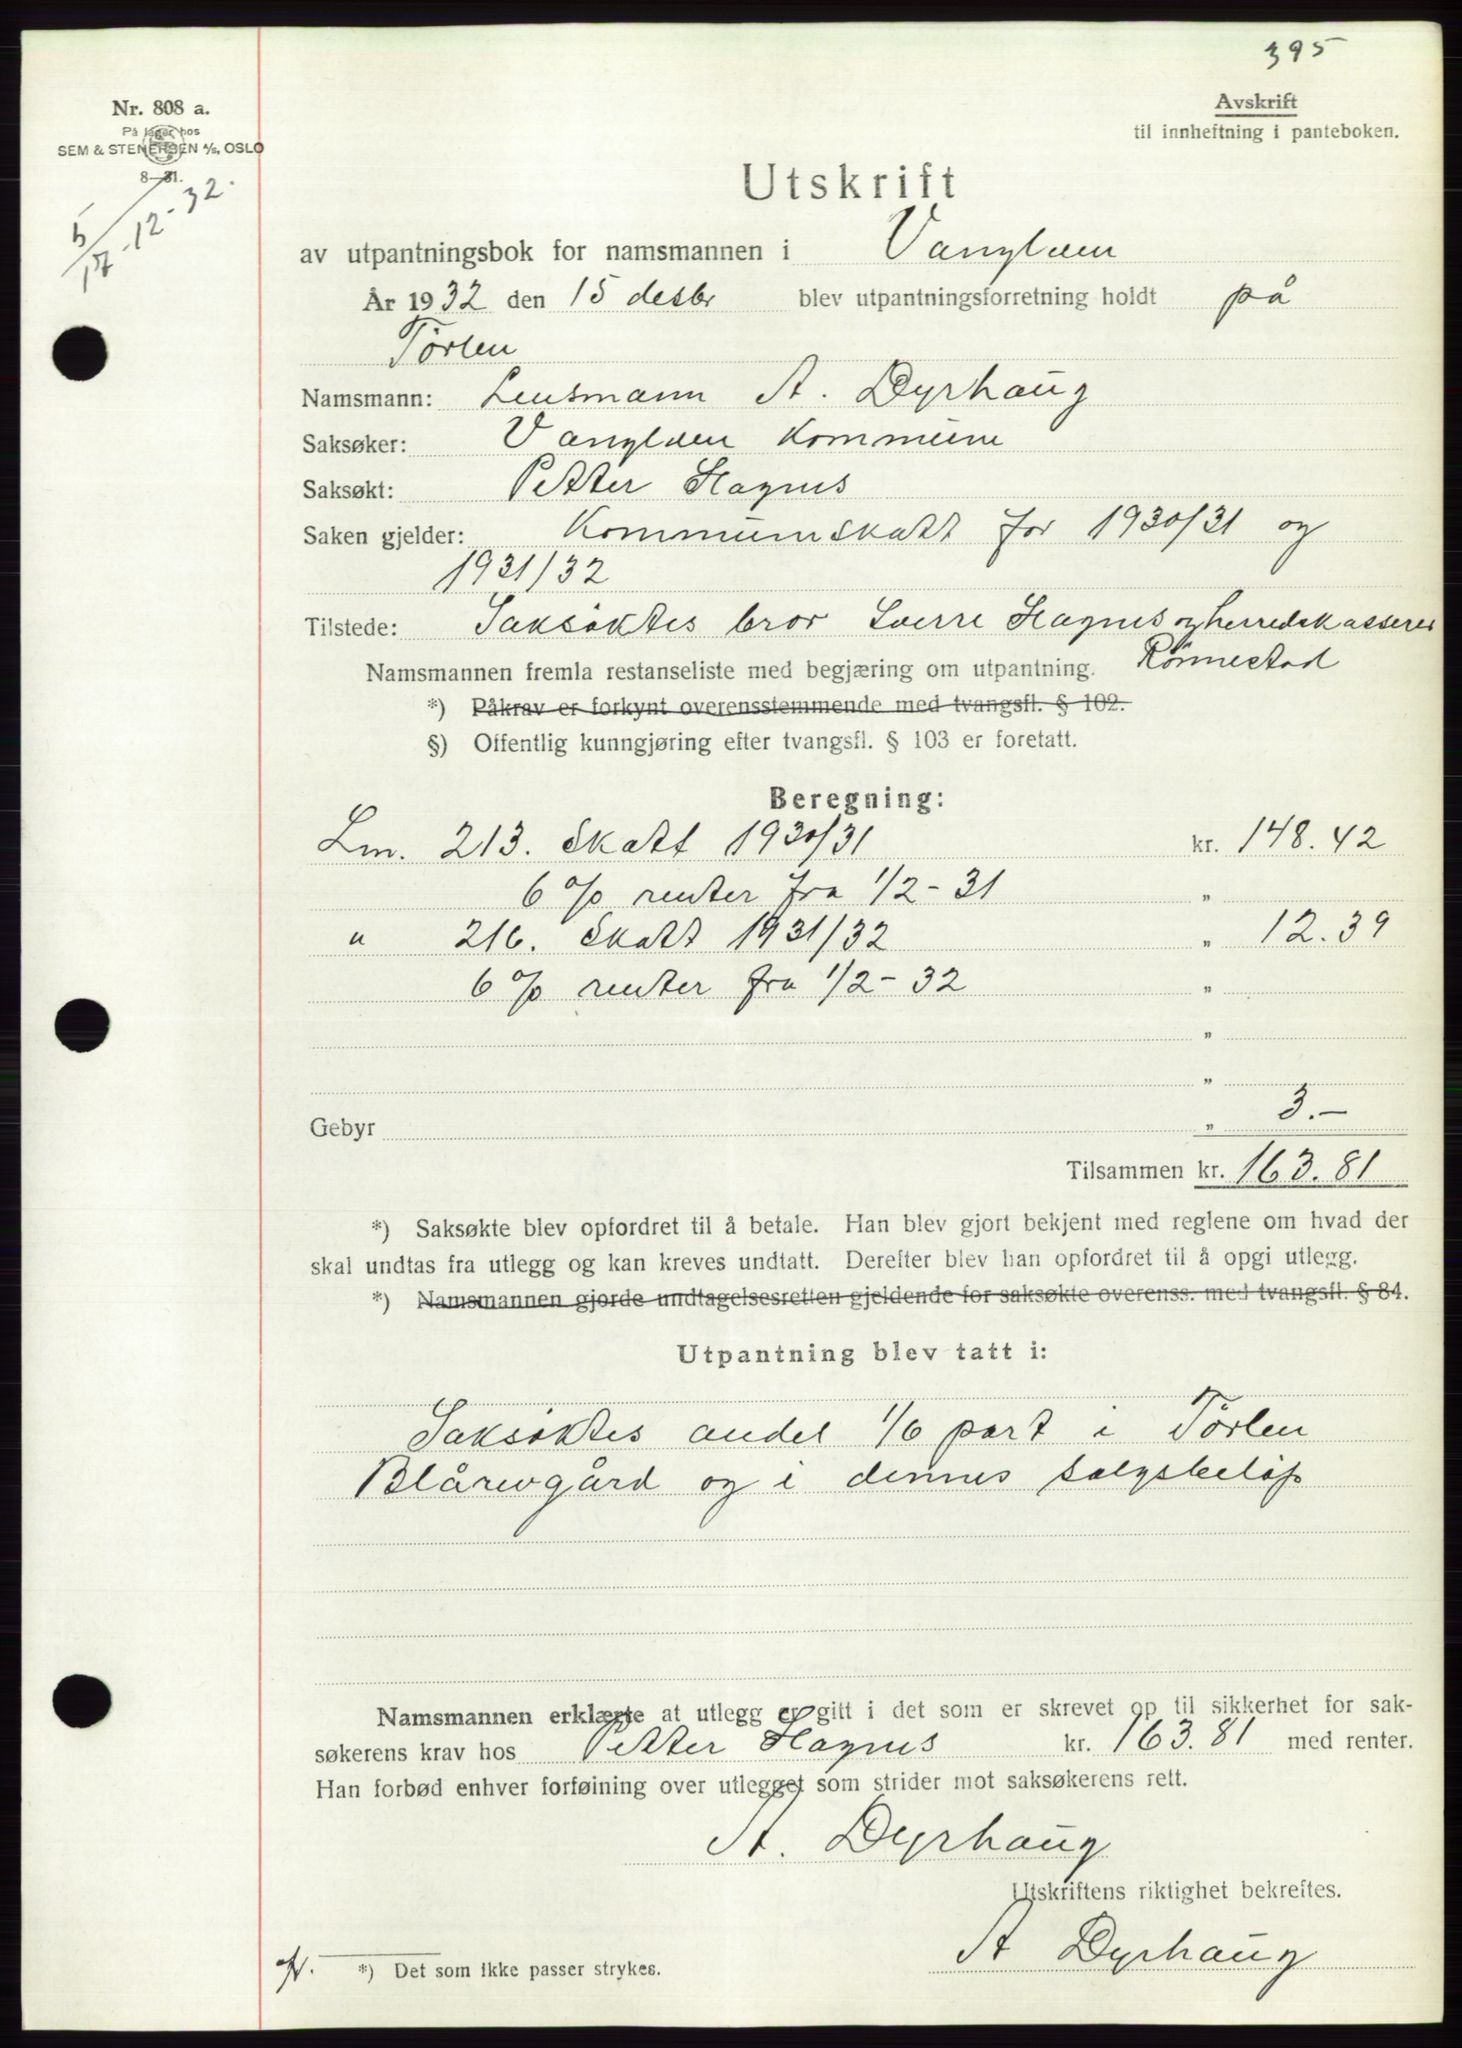 395
Nr. 808 a.
På lager hos
SEM & STENERSEN A/S, OSLO
8—31.
5/17-12-32.
Avskrift
til innheftning i panteboken.
Utskrift
av utpantningsbok for namsmannen i Vanylven
År 1932 den 15 desbr blev utpantningsforretning holdt på
Törlen
Namsmann: Lensmann A. Dyrhaug
Saksøker: Vanylven Kommune
Saksøkt: Petter Hagnus
Saken gjelder: Kommuneskatt for 1930/31 og
1931/32
Tilstede: Saksöktes bror Sverre Hagnus og herredskasserer
Rönnestad
Namsmannen fremla restanseliste med begjæring om utpantning.
*) Påkrav er forkynt overensstemmende med tvangsfl. § 102.
§) Offentlig kunngjøring efter tvangsfl. § 103 er foretatt.
Beregning:
Lm. 213. Skatt 1930/31 kr. 148.42
6 % renter fra 1/2-31 „
" 216. Skatt 1931/32 „ 12.39
6 % renter fra 1/2-32 „
„
„
Gebyr „ 3.—
Tilsammen kr. 163.81
*) Saksøkte blev opfordret til å betale. Han blev gjort bekjent med reglene om hvad der
skal undtas fra utlegg og kan kreves undtatt. Derefter blev han opfordret til å opgi utlegg.
*) Namsmannen gjorde undtagelsesretten gjeldende for saksøkte overenss. med tvangsfl. § 84.
Utpantning blev tatt i:
Saksöktes andel 1/6 part i Törlen
Blårevgård og i dennes salgsbelöp
Namsmannen erklærte at utlegg er gitt i det som er skrevet op til sikkerhet for sak-
søkerens krav hos Petter Hagnus kr. 163.81 med renter.
Han forbød enhver forføining over utlegget som strider mot saksøkerens rett.
A. Dyrhaug
Utskriftens riktighet bekreftes.
A Dyrhaug
*) Det som ikke passer strykes.